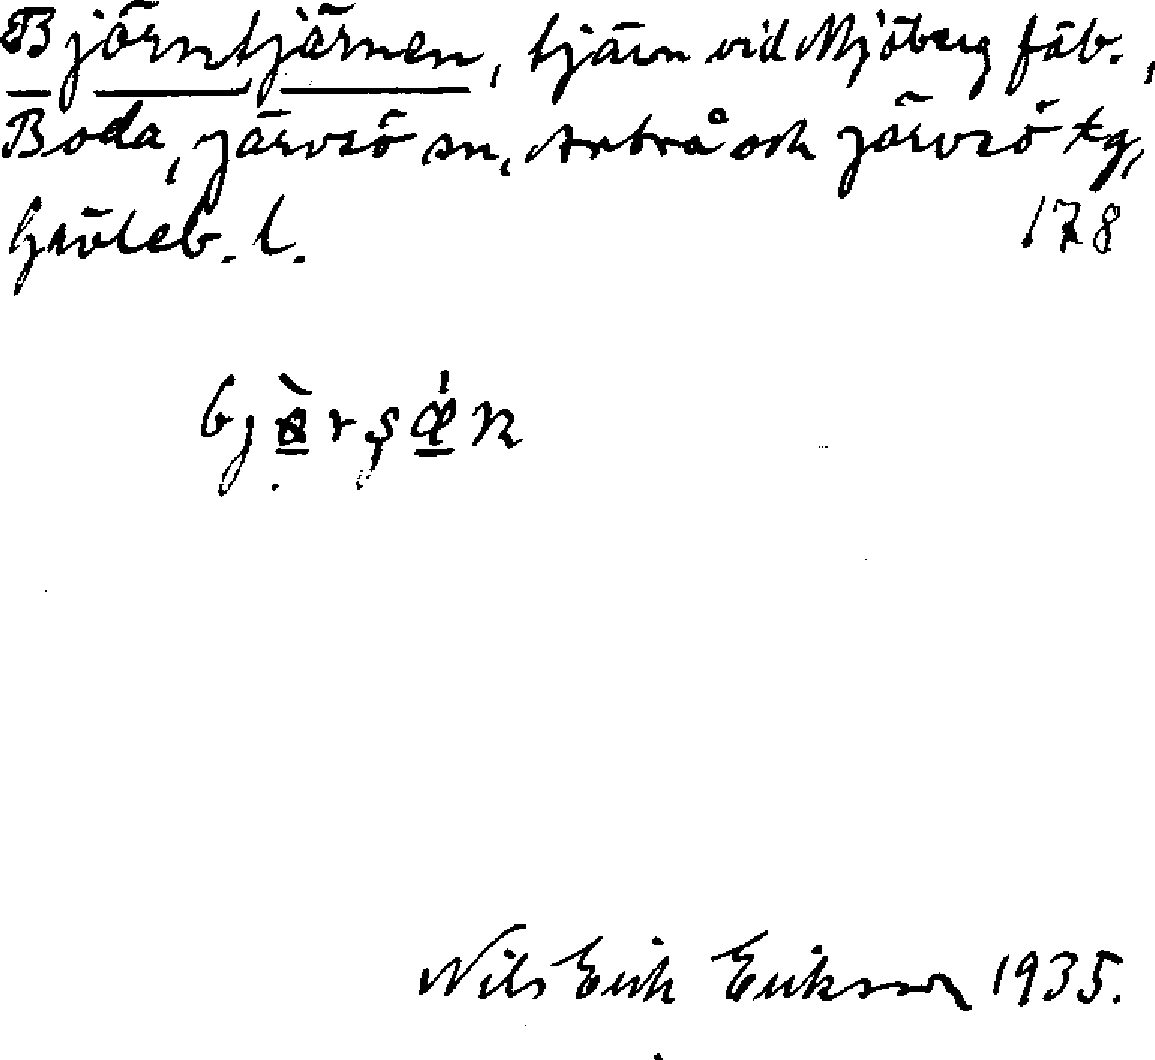 Björntjärnen, tjärn vid Mjöberg fäb.,
Boda, Järvsö sn, Arbrå och Järvsö tg,
Gävleb. l. 178
Nils Erik Eriksson 1935.